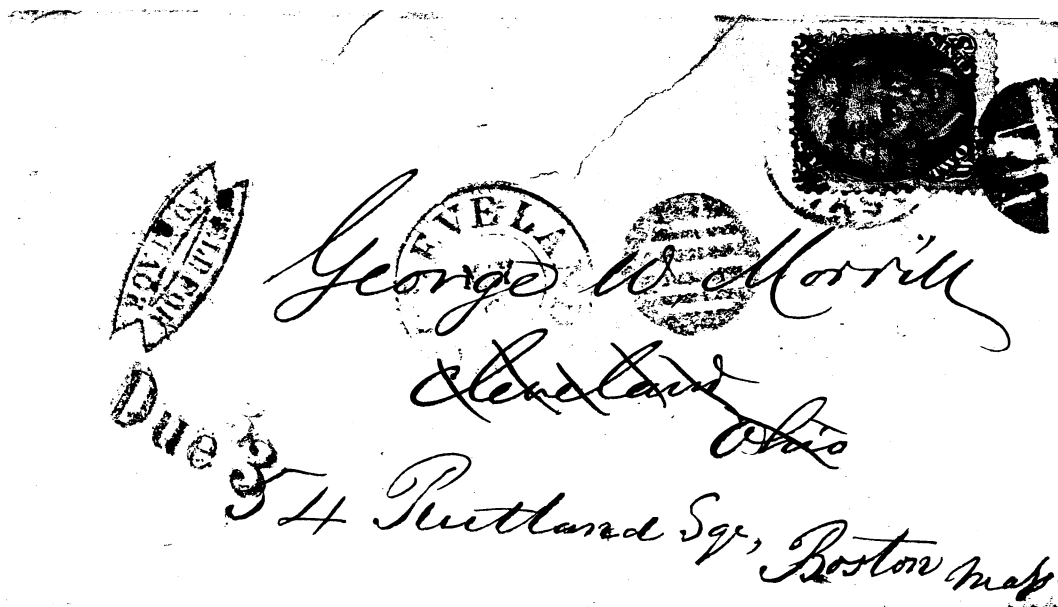 HELD FOR
POSTAGE
EVELA
George W. Morrill
Cleveland
Ohio
Due 3
54 Rutland Sqr, Boston Mass